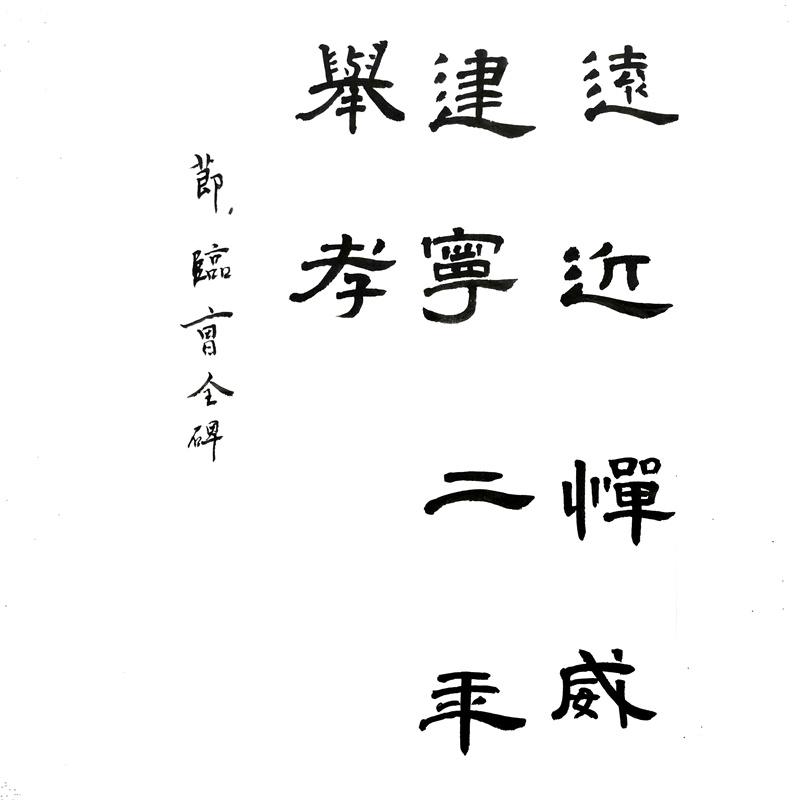 遠近憚威
建寧二年
舉孝
節臨曹全碑